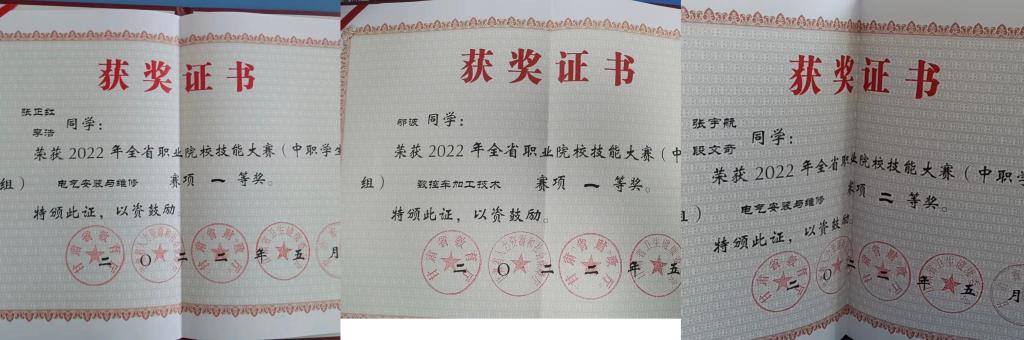 获奖证书
张正红
李浩
同学：
荣获2022年全省职业院校技能大赛（中职学生
组）电气安装与维修 赛项 一 等奖。
特颁此证，以资鼓励。
甘肃省教育厅
甘肃省财政厅
二〇二二年五月
获奖证书
邬波 同学：
荣获2022年全省职业院校技能大赛（中
组）数控车加工技术 赛项 一 等奖。
特颁此证，以资鼓励。
甘肃省教育厅
甘肃省财政厅
二〇二二年五
获奖证书
张宇航
段文奇
同学：
荣获2022年全省职业院校技能大赛（中职学
组）电气安装与维修 赛项 二 等奖。
特颁此证，以资鼓励。
甘肃省教育厅
甘肃省财政厅
二〇二二年五月